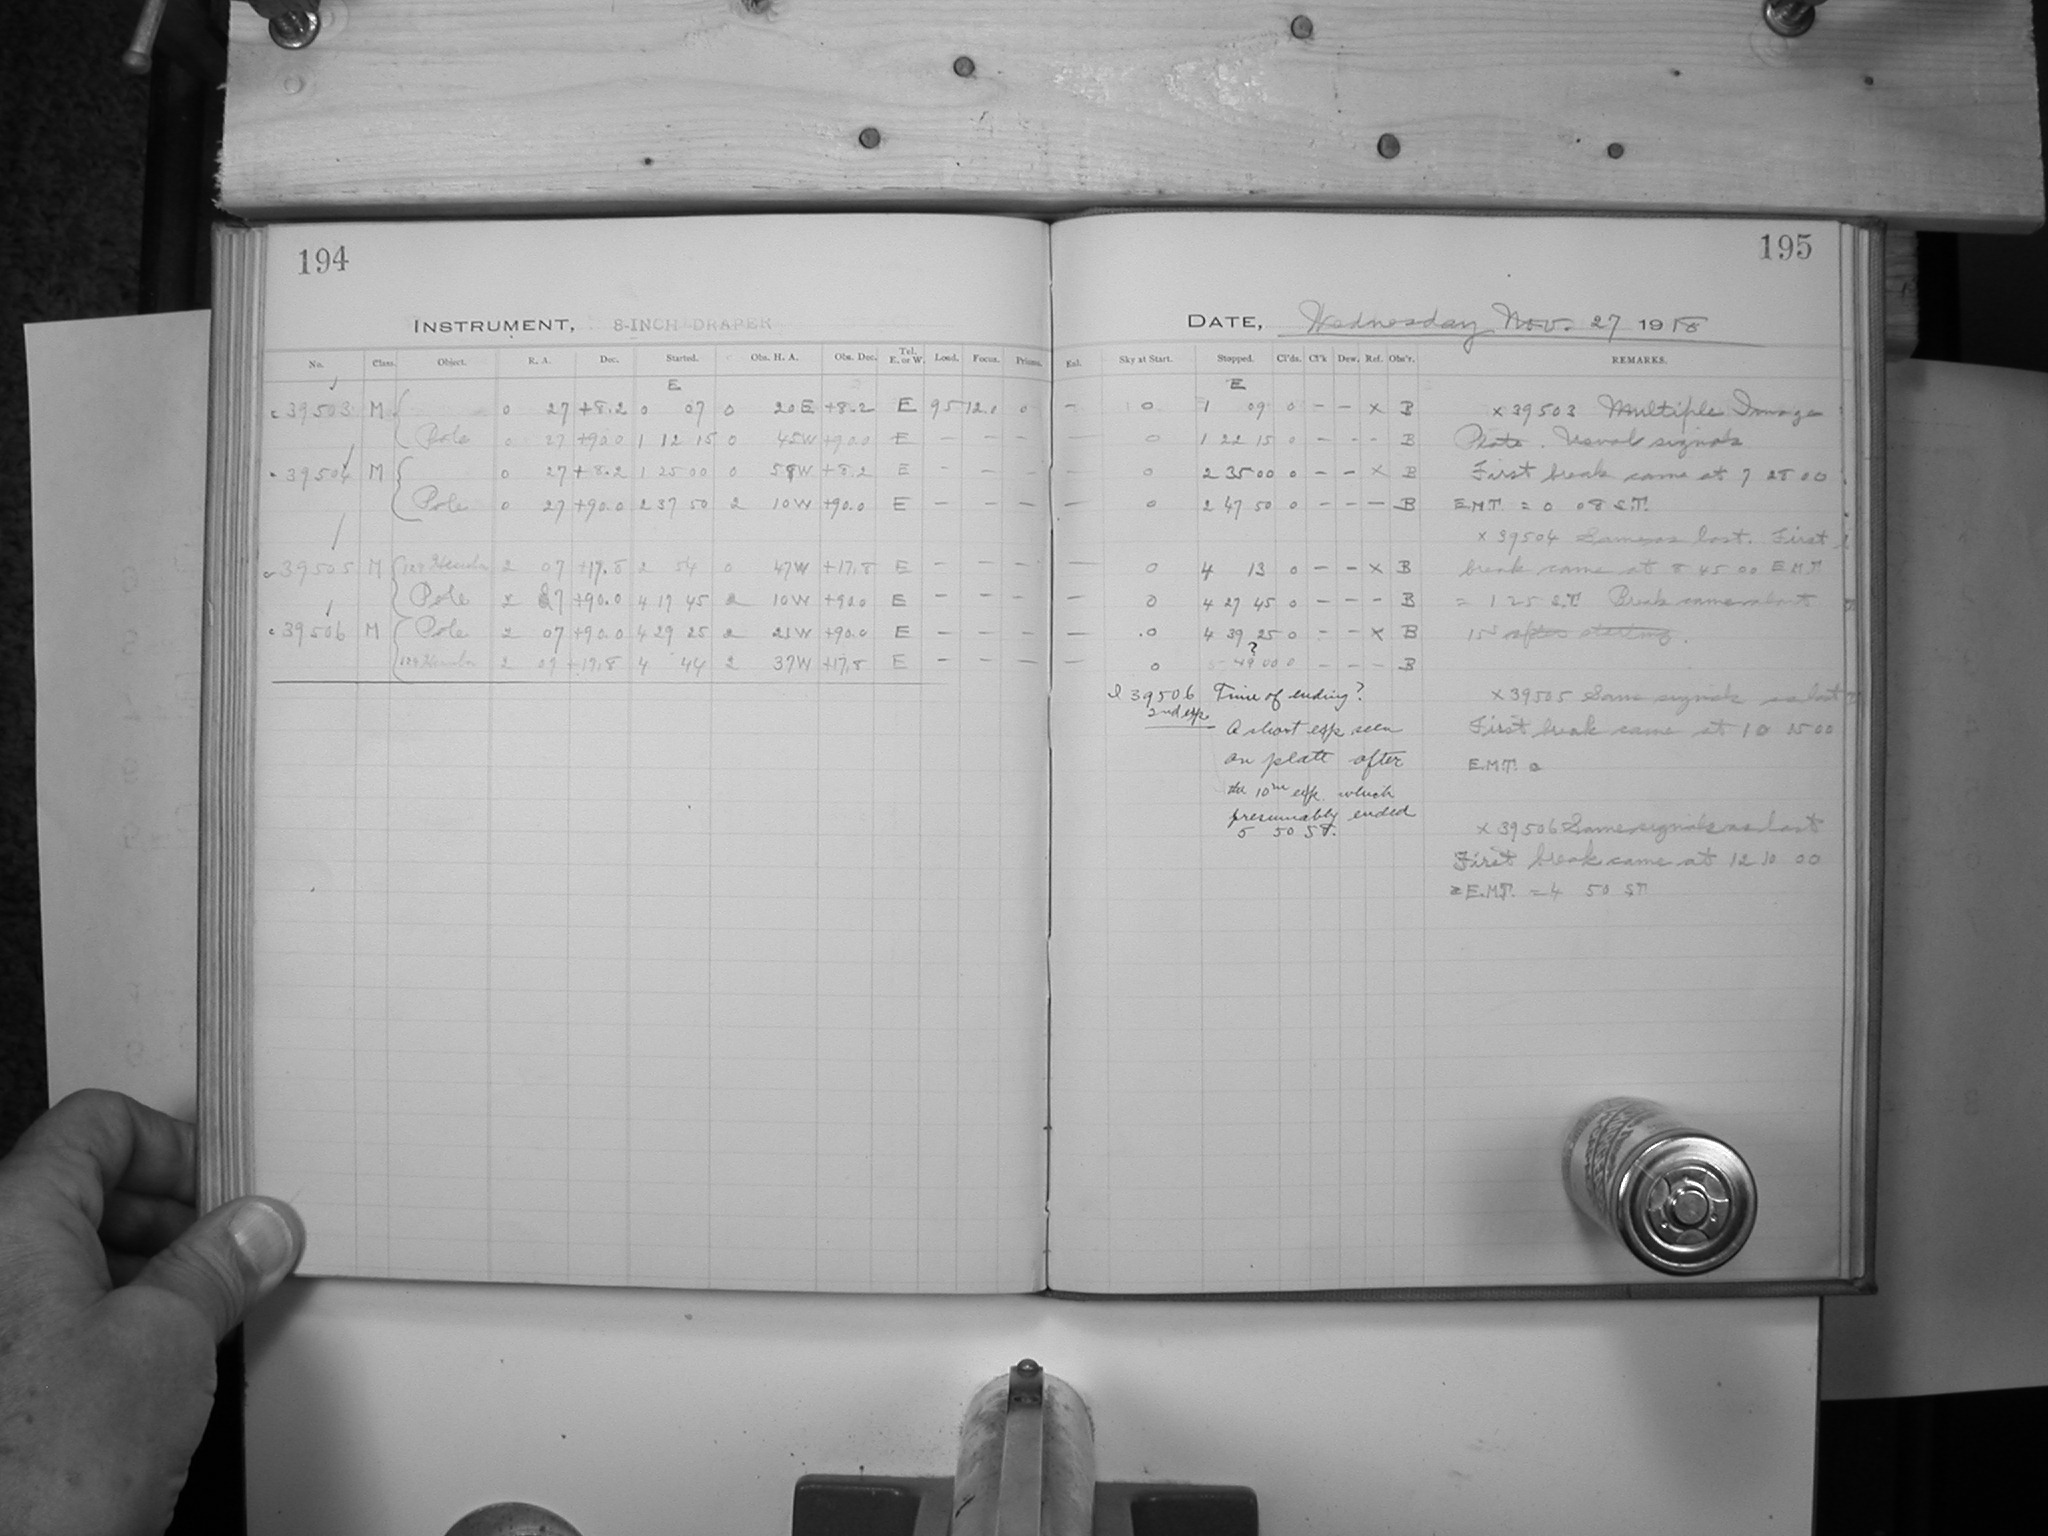 194
INSTRUMENT, 8-INCH DRAPER
No. Class. Object. R. A. Dec. Started. Obs. H. A. Obs. Dec. Tel. E. or W. Load. Focus. Prisms.
E
39503 M 0 27 +8.2 0 07 0 20 E +8.2 E 95 12.0 0
Pole 0 27 +90.0 1 12 15 0 45 W +90.0 E — — —
39504 M 0 27 +8.2 1 25 00 0 58 W +8.2 E — — —
Pole 0 27 +90.0 2 37 50 2 10 W +90.0 E — — —
39505 M 2 07 +17.8 2 54 0 47 W +17.8 E — — —
Pole 2 07 +90.0 4 17 45 2 10 W +90.0 E — — —
39506 M Pole 2 07 +90.0 4 29 25 2 21 W +90.0 E — — —
2 07 +17.8 4 44 2 37 W +17.8 E — — —
195
DATE, Wednesday Nov. 27 1918
Enl. Sky at Start. Stopped. Cl'ds. Cl'k Dew. Ref. Obs'r. REMARKS.
E
— 0 1 09 0 — — x B
— 0 1 22 15 0 — — - B
— 0 2 35 00 0 — — x B
— 0 2 47 50 0 — — — B
— 0 4 13 0 — — x B
— 0 4 27 45 0 — — - B
— 0 4 39 25 0 — — x B
?
— 0 49 00 0 — — - B
39506 Time of ending?
2nd exp.
A short exp seen
on plate after
the 10m exp. which
presumably ended
5 50 S.T.
x 39503 Multiple Image
Plate. Usual signals
First break came at 7 28 00
E.M.T. = 0 08 S.T.
x 39504 Same as last. First
break came at 8 45 00 E.M.T.
= 1 25 S.T. Break came about
15s after starting.
x 39505 Same signals as last
First break came at 10 15 00
E.M.T. =
x 39506 Same signals as last
First break came at 12 10 00
E.M.T. = 4 50 S.T.